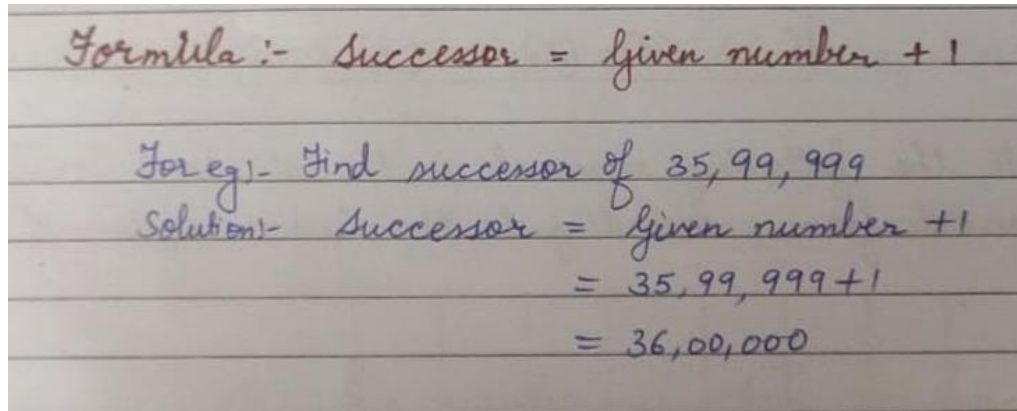 Formula :- Successor = Given number + 1
For eg:- Find successor of 35,99,999
Solution:- Successor = Given number +1
= 35,99,999+1
= 36,00,000